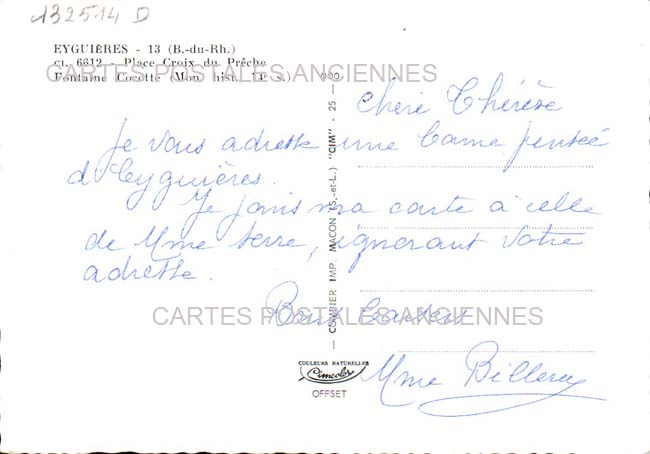 132514 D
EYGUIÈRES - 13 (B.-du-Rh.)
CI. 6612 - Place Croix du Prêche
Fontaine Cocotte (Mon. hist. s.)
CARTES POSTALES ANCIENNES
Chère Thérèse
Je vous adresse une bonne pensée
d'Eyguières.
Je joins ma carte à celle
de Mme Serre, ignorant votre
adresse.
Bons baisers
CARTES POSTALES ANCIENNES
Mme
COMBIER IMP. MACON (S.-et-L.) "CIM" - 25 -
COULEURS NATURELLES
Cimcolor
OFFSET